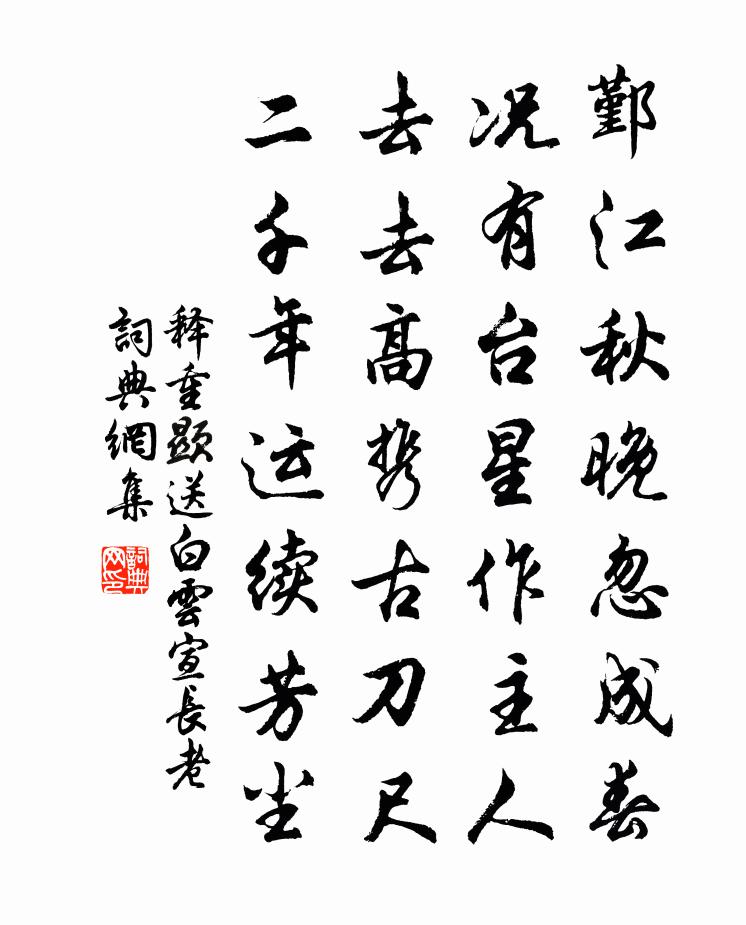 鄞江秋晚忽成春
况有台星作主人
去去高携古刀尺
二千年运续芳尘
释重顯送白雲宣長老
詞典網集
詞典网印